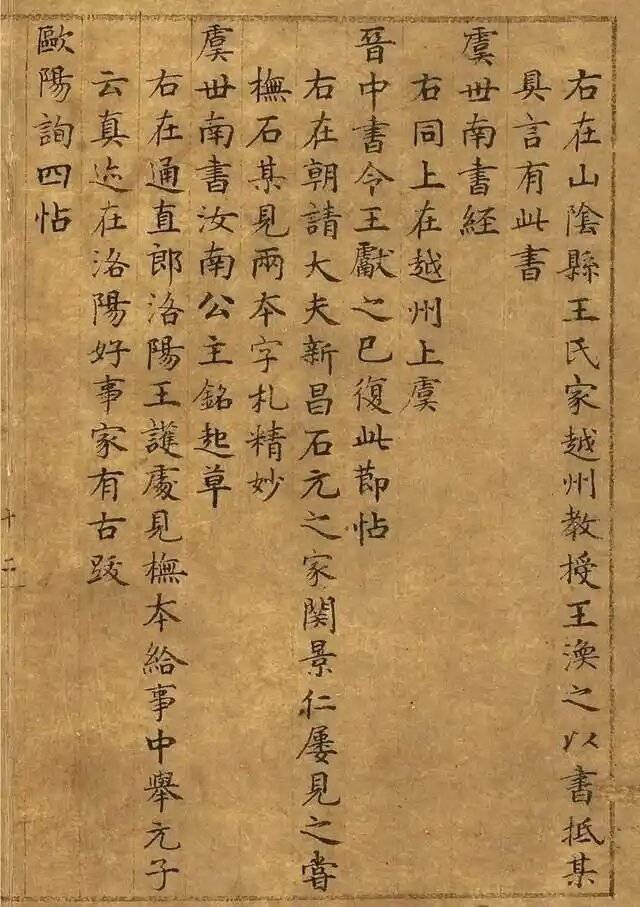 右在山陰縣王氏家越州教授王渙之以書抵某
具言有此書
虞世南書經
右同上在越州上虞
晉中書令王獻之已復此節帖
右在朝請大夫新昌石元之家關景仁屢見之嘗
橅石某見兩本字札精妙
虞世南書汝南公主銘起草
右在通直郎洛陽王護處見橅本給事中舉元子
云真迹在洛陽好事家有古跋
歐陽詢四帖
十二